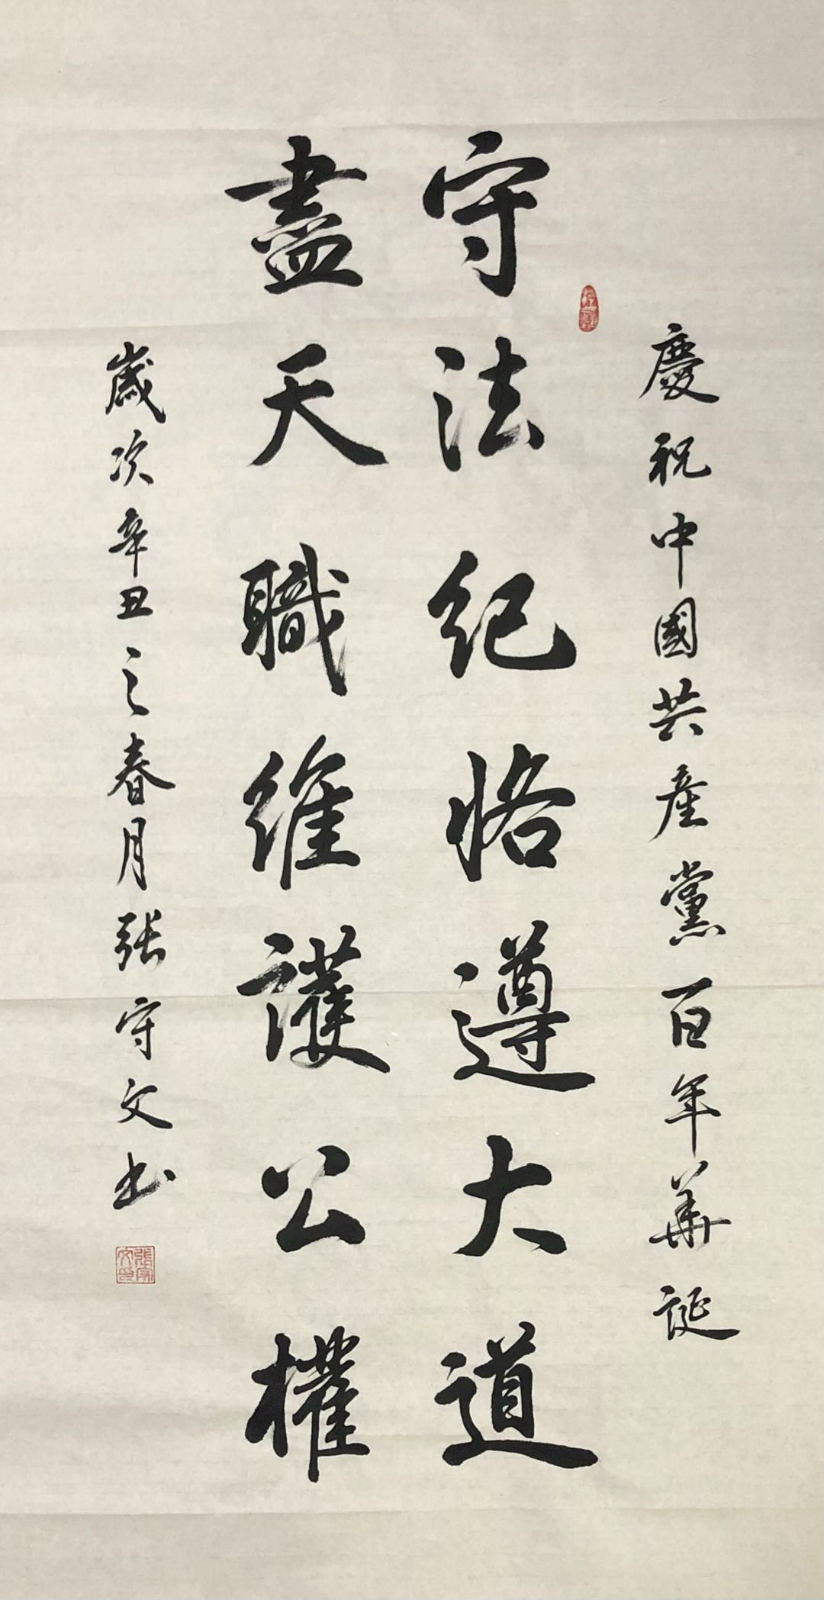 慶祝中國共產黨百年華誕
守法紀恪遵大道
盡天職維護公權
歲次辛丑之春月张守文书